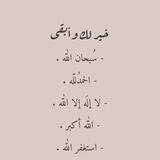 خير لك وأبقى
- سُبحان الله .
- الحمدُلله .
- لا إله إلا الله .
- الله أكبر .
- استغفر الله .